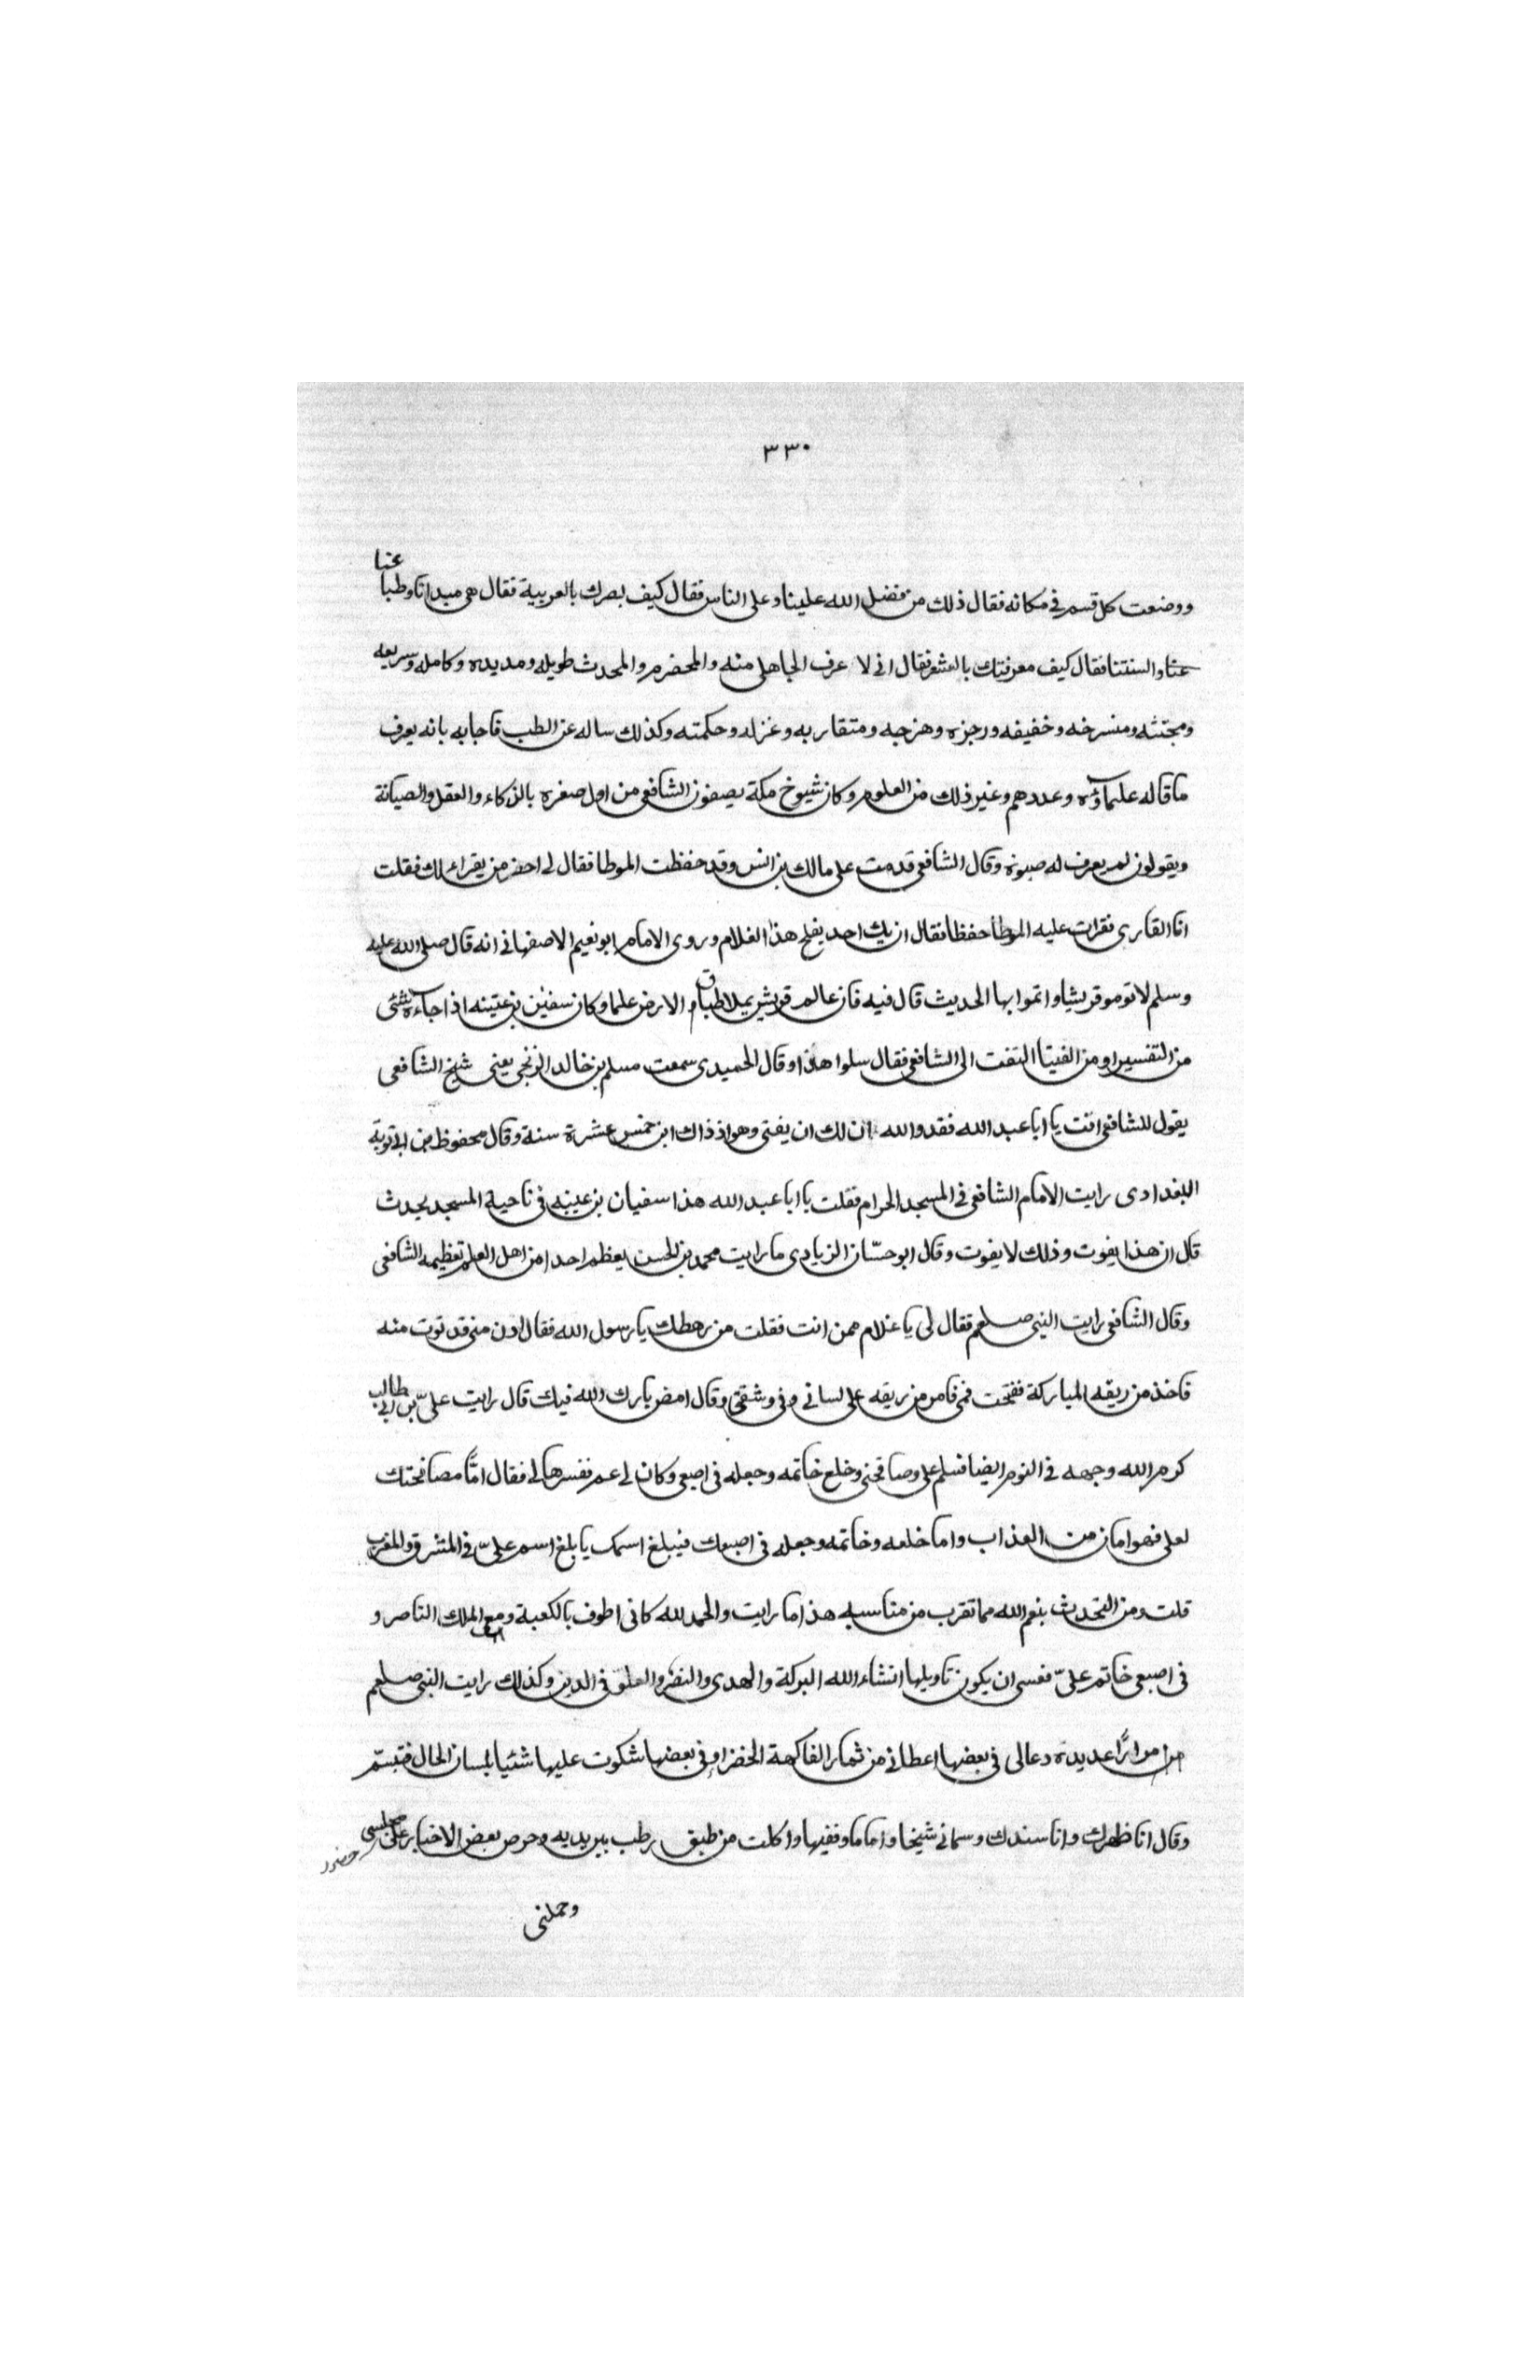 ٣٣٠
ووضعت كل قسم في مكانه فقال ذلك من فضل الله علينا وعلى الناس فقال كيف بصرك بالعربية فقال هي مبداتا وطبا عنا
عنا والسنتنا فقال كيف معرفتك بالشعر فقال اني لا عرف الجاهلي منه والمحضرم والمحدث طويله ومديده وكامله وسريعه
ومجتثه ومنسرخه وخفيفه ورجزه وهزجه ومتقاربه وغزله وحكمته وكذلك ساله عن الطب فاجابه بانه يعرف
ما قاله علماؤه وعددهم وغير ذلك من العلوم وكان شيوخ مكة يصفون الشافعي من اول صغره بالذكاء والعقل والصيانة
ويقولون لم يعرف له صبوة وقال الشافعي قدمت على مالك بن انس وقد حفظت الموطا فقال لي احضر من يقرا لك فقلت
انا القارى فقرات عليه الموطأ حفظا فقال ان يك احد يفلح هذا الغلام وروى الامام ابو نعيم الاصفهاني انه قال صلى الله عليه
وسلم لا توموا قريشا واتموا بها الحديث قال فيه فان عالم قريش يملا طباق الارض علما وكان سفين بن عتينه اذا جآءه شئى
من التفسير او من الفيتا التفت الى الشافعي فقال سلوا هذا وقال الحميدى سمعت مسلم بن خالد الزنجى يعنى شيخ الشافعى
يقول للشافعي افت يا ابا عبد الله فقد والله ان لك ان يفتى وهو اذ ذاك ابن خمس عشرة سنة وقال محفوظ بن ابي توبة
البغدادى رايت الامام الشافعي في المسجد الحرام فقلت يا ابا عبد الله هذا سفيان بن عيينه في ناحية المسجد يحدث
قال ان هذا يفوت وذلك لا يفوت وقال ابو حسّان الزيادى ما رايت محمد بن الحسن يعظم احدا من اهل العلم تعظيمه الشافعى
وقال الشافعي رايت النبي صلعم فقال لى يا غلام ممن انت فقلت من رهطك يا رسول الله فقال ادن منى قد نوت منه
فاخذ من ريقه المباركة ففتحت فمي فامر من ريقه على لساني وفي وشفتي وقال امض بارك الله فيك قال رايت علىّ بن ابي طالب
كرم الله وجهه في النوم ايضا فسلم على وصافحنى وخلع خاتمه وجعله في اصبعى وكان لي عم ففسرها لي فقال امّا مصافحتك
لعلي فهو امان من العذاب واما خلعه وخاتمه وجعله في اصبعك فيبلغ اسمك يا بلغ اسم علىّ في المشرق والمغرب
قلت ومن التحديث بنعم الله مما تقرب من مناسبه هذا ما رايت والحمد لله كانى اطوف بالكعبة ومع الملك الناصر و
في اصبعى خاتم علىّ فعسى ان يكون تاويلها انشاء الله البركة والهدى والنصر والعلوّ في الدين وكذلك رايت النبي صلعم
مرارًا عديدة دعالى في بعضها اعطاني من ثمار الفاكهة الخضرا وفي بعضها شكوت عليها شئيا بلسان الحال فتبسّم
وقال انا ظهرك وانا سندك وسماني شيخا واماما وفقيها واكلت من طبق رطب بين يديه وحرص بعض الاخبار على مجلسي حضور
وحملنى